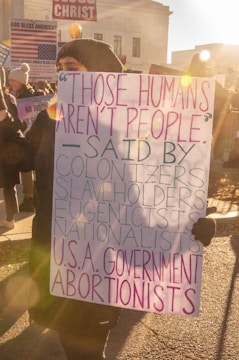 JESUS
CHRIST
GOD BLESS AMERICA!
"THOSE HUMANS
AREN'T PEOPLE."
— SAID BY
COLONIZERS
SLAVEHOLDERS
EUGENICISTS
NATIONALISTS
U.S.A. GOVERNMENT
ABORTIONISTS